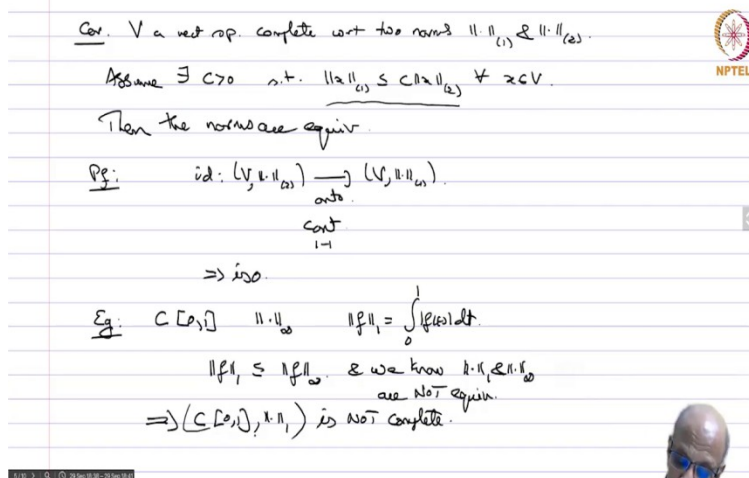 Cor. V a vect sp. complete wrt two norms ‖·‖₍₁₎ & ‖·‖₍₂₎.
NPTEL
Assume ∃ C>0 s.t. ‖x‖₍₁₎ ≤ C‖x‖₍₂₎ ∀ x∈V.
Then the norms are equiv.
Pf: id: (V, ‖·‖₍₂₎) → (V, ‖·‖₍₁₎).
onto.
cont
1-1
⇒ iso.
Eg: C[0,1] ‖·‖∞ ‖f‖₁ = ∫₀¹ |f(t)| dt.
‖f‖₁ ≤ ‖f‖∞ & we know ‖·‖₁ & ‖·‖∞
are NOT equiv.
⇒ (C[0,1], ‖·‖₁) is NOT complete.